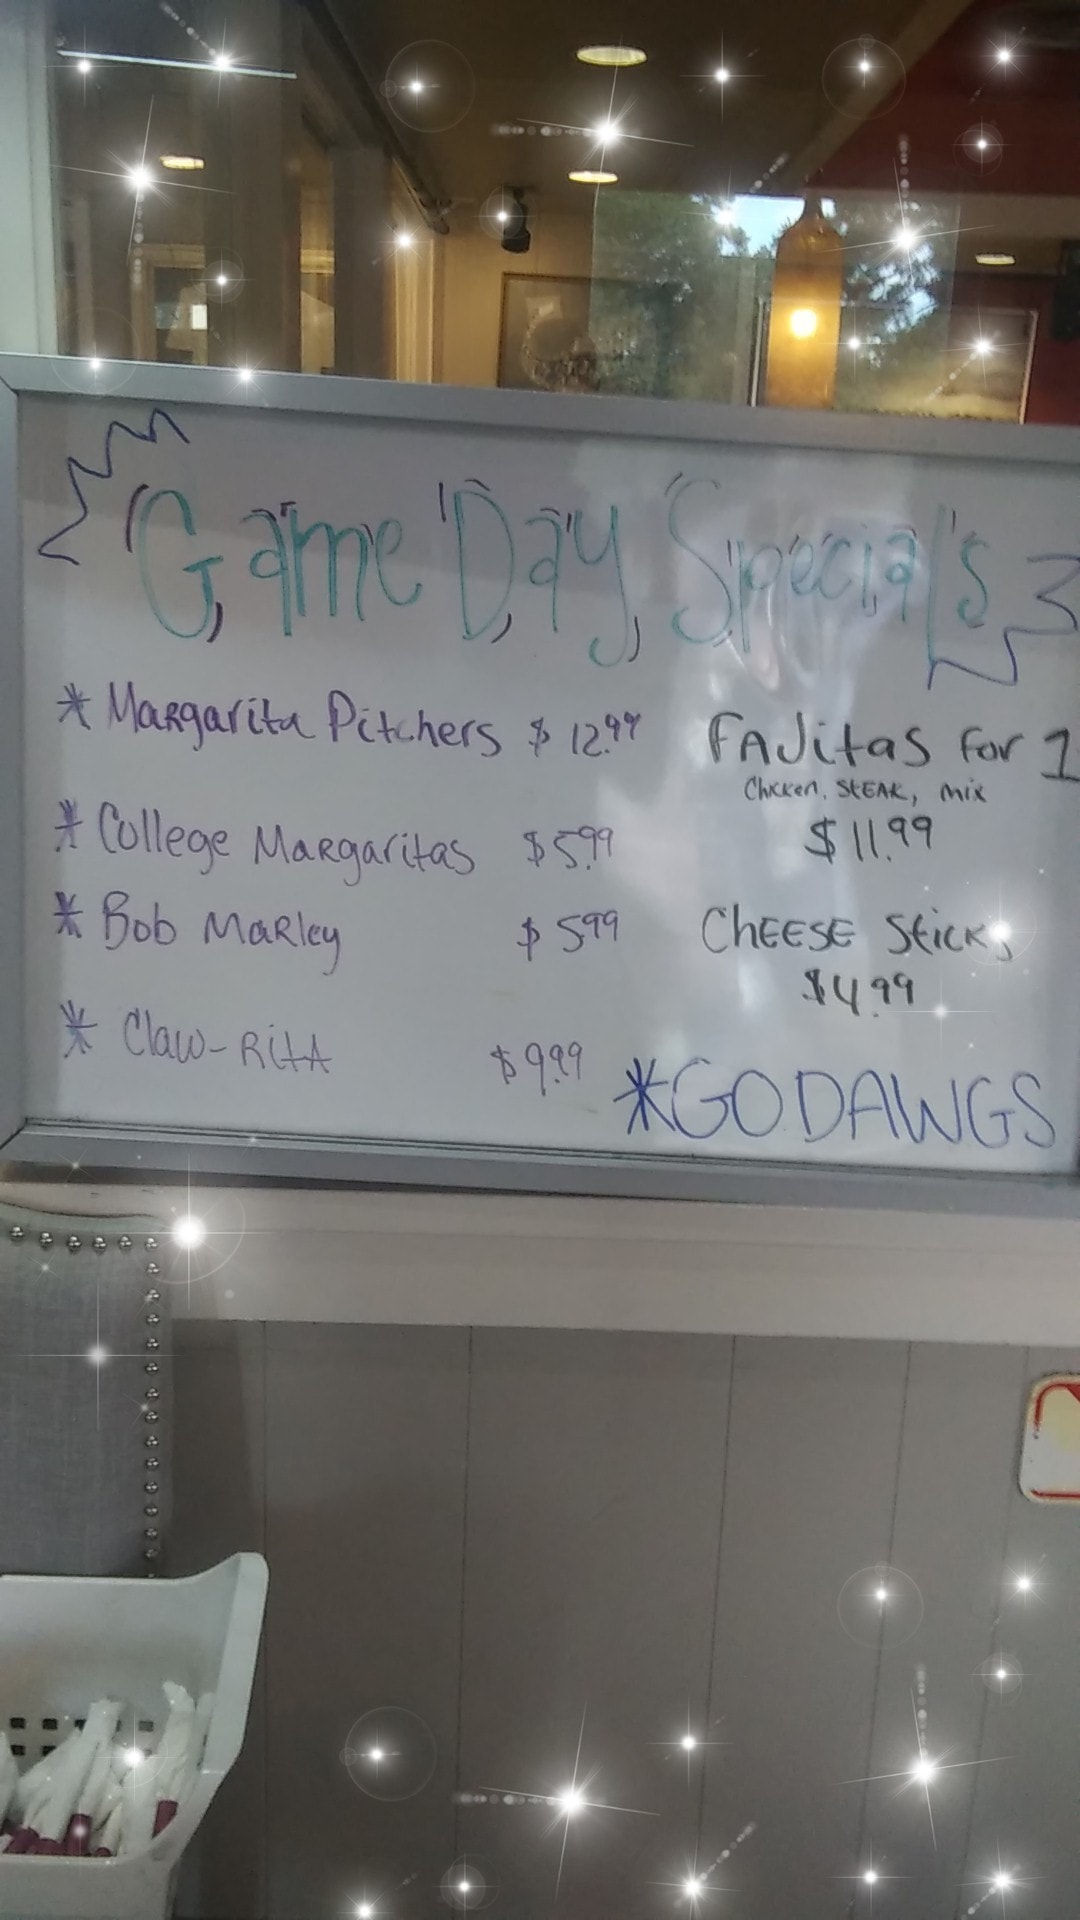 Game Day Specials
* Margarita Pitchers $ 12.99
* College Margaritas $5.99
* Bob Marley $ 5.99
* Claw-Rita $9.99
Fajitas for 1
Chicken, Steak, mix
$11.99
Cheese Sticks
$4.99
*GO DAWGS